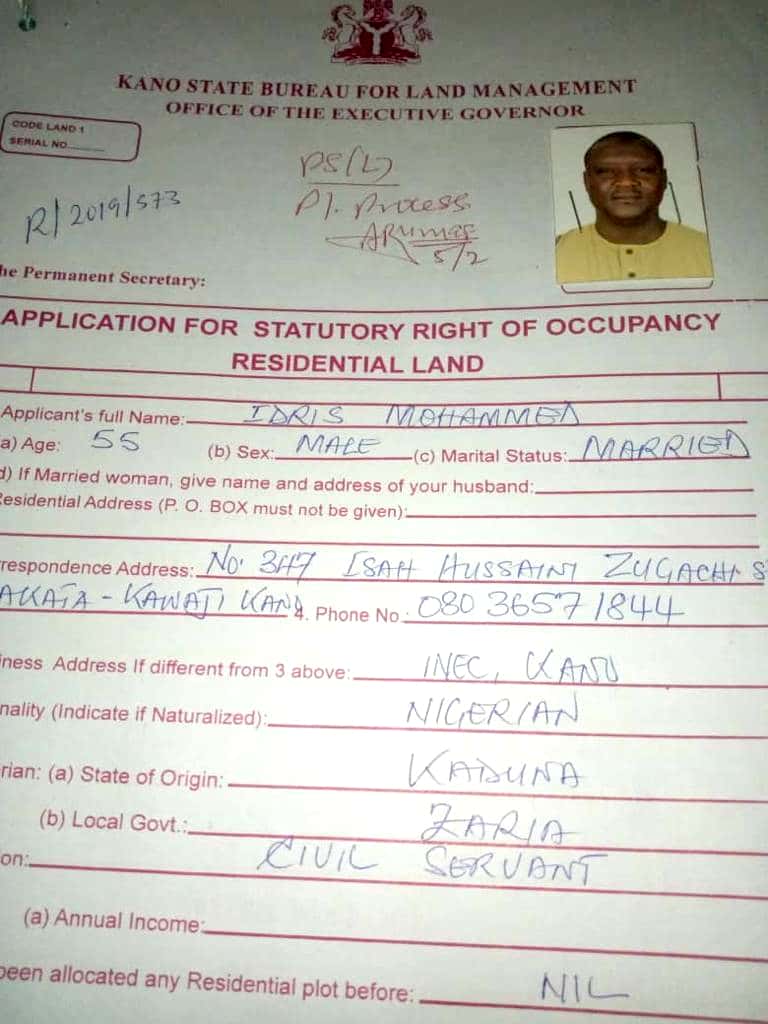 KANO STATE BUREAU FOR LAND MANAGEMENT
OFFICE OF THE EXECUTIVE GOVERNOR
CODE LAND 1
SERIAL NO.
R/2019/573
PS(L)
Pl. Process
5/2
he Permanent Secretary:
APPLICATION FOR STATUTORY RIGHT OF OCCUPANCY
RESIDENTIAL LAND
Applicant's full Name: IDRIS MOHAMMED
a) Age: 55 (b) Sex: MALE (c) Marital Status: MARRIED
d) If Married woman, give name and address of your husband:
Residential Address (P. O. BOX must not be given):
rrespondence Address: No. 347 ISAH HUSSAINI ZUGACHI S
KAWAJI KANO 4. Phone No.: 08036571844
iness Address If different from 3 above: INEC, KANO
nality (Indicate if Naturalized): NIGERIAN
rian: (a) State of Origin: KADUNA
(b) Local Govt.: ZARIA
on: CIVIL SERVANT
(a) Annual Income:
been allocated any Residential plot before: NIL